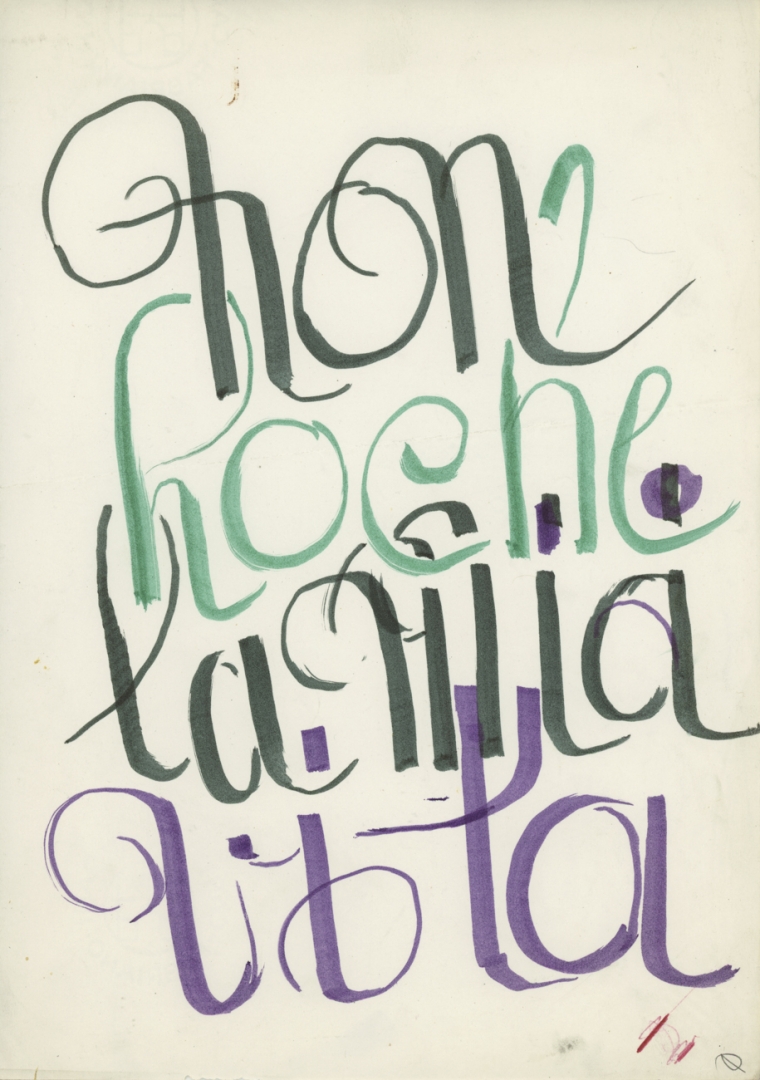 non
ho che
la mia
vita